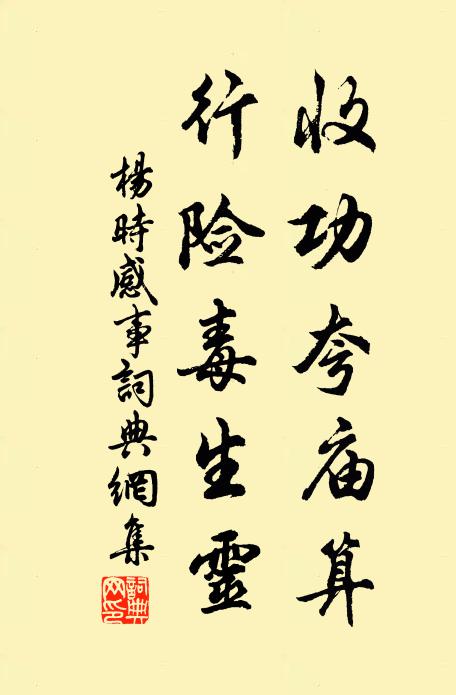 收功夸庙算
行险毒生靈
楊時感事詞典網集